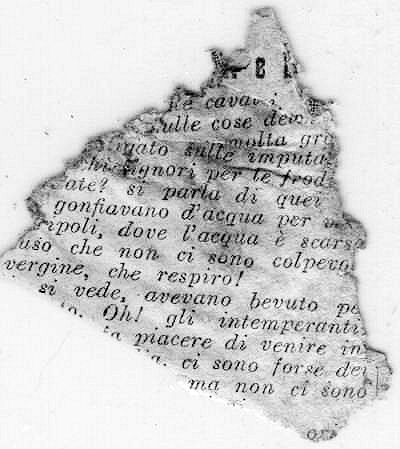 cava
sulle cose
molta gra
sulle imputa
signori per le frod
ate? si parla di quei
gonfiavano d'acqua per
ripoli, dove l'acqua è scarsa
uso che non ci sono colpevo
vergine, che respiro!
si vede, avevano bevuto pe
to. Oh! gli intemperanti
ia piacere di venire in
lia. ci sono forse dei
ma non ci sono